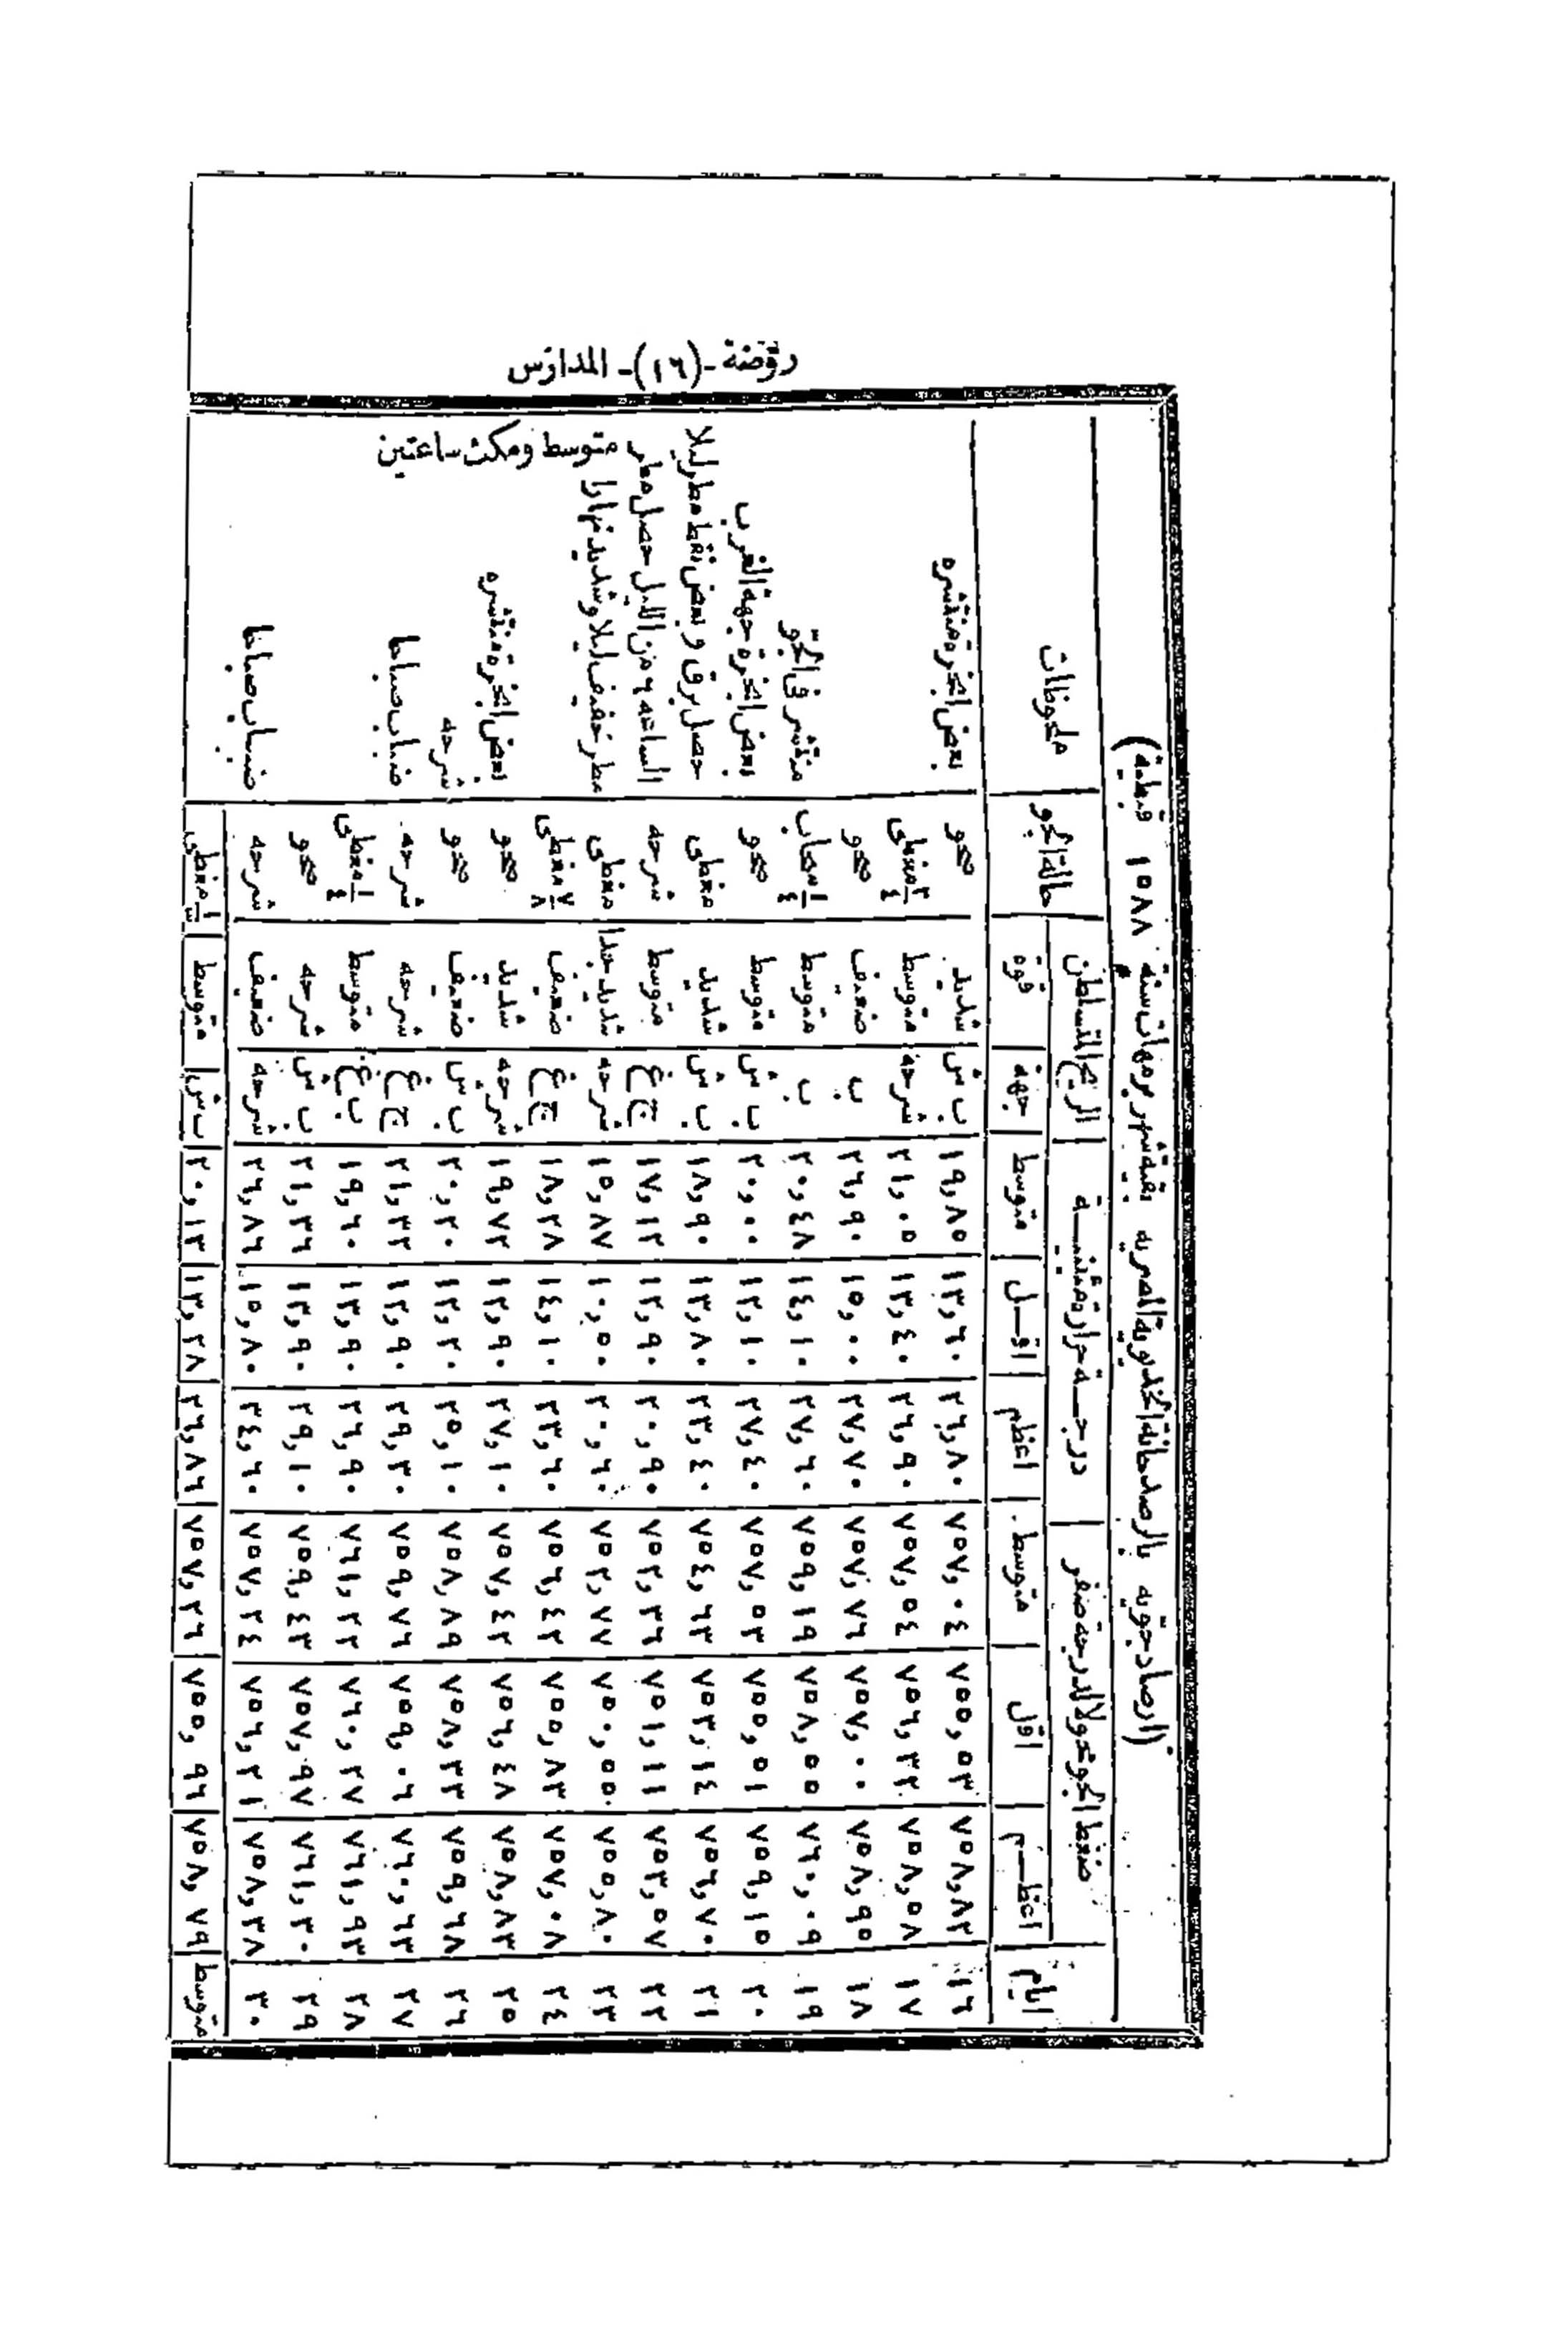 روضة -(١٦)- المدارس
(ارصاد جويه بالرصدخانة الخديوية المصريه بقية شهر برمهات سنة ١٥٨٨ قبطية)
ايام ضغط الجو محولا لدرجة صفر درجة حرارة مئينية الريح المتسلطن حالة الجو ملحوظات
اعظم اقل متوسط اعظم اقل متوسط جهة قوه
١٦ ٧٥٨,٨٢ ٧٥٥,٥٣ ٧٥٧,٠٤ ٢٦,٨٠ ١٣,٦٠ ١٩,٨٥ ب ش شديد صحو بعض ابخرة منتشره
١٧ ٧٥٨,٥٨ ٧٥٦,٣٢ ٧٥٧,٥٤ ٢٦,٩٠ ١٣,٤٠ ٢١,٠٥ شرحه متوسط ٣/٤ مغطى
١٨ ٧٥٨,٩٥ ٧٥٧,٠٠ ٧٥٧,٧٦ ٢٧,٧٠ ١٥,٠٠ ٢٦,٩٠ ب ضعيف صحو
١٩ ٧٦٠,٠٩ ٧٥٨,٥٥ ٧٥٩,١٩ ٢٧,٦٠ ١٤,١٠ ٢٠,٤٨ ب متوسط ١/٤ سحاب منتشر فى الجو
٢٠ ٧٥٩,١٥ ٧٥٥,٥١ ٧٥٧,٥٣ ٢٧,٤٠ ١٢,١٠ ٢٠,٠٠ ب ش متوسط صحو بعض ابخرة جهة الغرب
٢١ ٧٥٦,٧٠ ٧٥٣,١٤ ٧٥٤,٦٣ ٢٣,٤٠ ١٣,٨٠ ١٨,٩٠ ب ش شديد مغطى حصل برق وبعض نقط مطر ليلا
٢٢ ٧٥٣,٥٧ ٧٥١,١١ ٧٥٢,٣٦ ٢٠,٩٠ ١٢,٩٠ ١٧,١٢ ج غ متوسط شرحه الساعه ٦ من الليل حصل مطر متوسط ومكث ساعتين
٢٣ ٧٥٥,٨٠ ٧٥٠,٥٥ ٧٥٢,٧٧ ٢٠,٦٠ ١٠,٥٠ ١٥,٨٧ شرحه شديد جدا مغطى مطر خفيف ليلا وشديد نهارا
٢٤ ٧٥٧,٠٨ ٧٥٥,٨٣ ٧٥٦,٤٢ ٢٣,٦٠ ١٤,١٠ ١٨,٢٨ ج غ ضعيف ٧/٨ مغطى
٢٥ ٧٥٨,٨٣ ٧٥٦,٤٨ ٧٥٧,٤٢ ٢٧,١٠ ١٢,٩٠ ١٩,٧٢ شرحه شديد صحو بعض ابخرة منتشره
٢٦ ٧٥٩,٦٨ ٧٥٨,٣٣ ٧٥٨,٨٩ ٢٥,١٠ ١٢,٢٠ ٢٠,٢٠ ب ش ضعيف صحو شرحه
٢٧ ٧٦٠,٦٣ ٧٥٩,٠٦ ٧٥٩,٧٦ ٢٩,٣٠ ١٢,٩٠ ٢١,٣٢ ج غ شرحه شرحه ضباب صباحا
٢٨ ٧٦١,٩٣ ٧٦٠,٢٧ ٧٦١,٢٢ ٢٦,٩٠ ١٣,٩٠ ١٩,٦٠ ب غ متوسط ١/٤ مغطى
٢٩ ٧٦١,٣٠ ٧٥٧,٩٧ ٧٥٩,٤٣ ٢٩,١٠ ١٣,٩٠ ٢١,٣٦ ب ش شرحه صحو
٣٠ ٧٥٨,٣٨ ٧٥٦,٢١ ٧٥٧,٢٤ ٣٤,٦٠ ١٥,٨٠ ٢٦,٨٦ شرحه ضعيف شرحه ضباب صباحا
متوسط ٧٥٨,٧٩ ٧٥٥,٩٦ ٧٥٧,٢٦ ٢٦,٨٦ ١٣,٢٨ ٢٠,١٣ ب ش متوسط ١/٣ مغطى